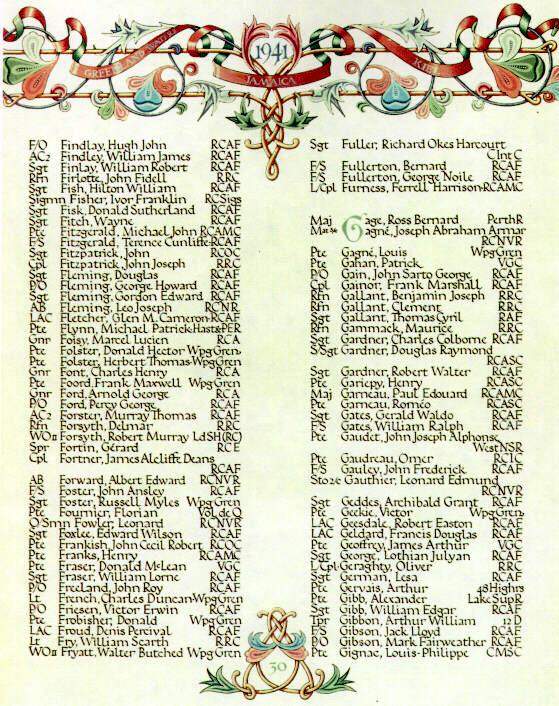 1941
GREECE AND WATERS
JAMAICA
F/O Findlay, Hugh John RCAF
AC2 Findley, William James RCAF
Sgt Finlay, William Robert RCAF
Rfn Firlotte, John Fidell RRC
Sgt Fish, Hilton William RCAF
Sigmn Fisher, Ivor Franklin RCSigs
Sgt Fisk, Donald Sutherland RCAF
Sgt Fitch, Wayne RCAF
Pte Fitzgerald, Michael John RCAMC
F/S Fitzgerald, Terence Cunliffe RCAF
Sgt Fitzpatrick, John RCOC
Cpl Fitzpatrick, John Joseph RRC
Sgt Fleming, Douglas RCAF
P/O Fleming, George Howard RCAF
Sgt Fleming, Gordon Edward RCAF
AB Fleming, Leo Joseph RCNR
LAC Fletcher, Glen McCameron RCAF
Pte Flynn, Michael Patrick Hast&PER
Gnr Foisy, Marcel Lucien RCA
Pte Folster, Donald Hector Wpg Gren
Pte Folster, Herbert Thomas Wpg Gren
Gnr Font, Charles Henry RCA
Pte Foord, Frank Maxwell Wpg Gren
Gnr Ford, Arnold George RCA
P/O Ford, Percy George RCAF
AC2 Forster, Murray Thomas RCAF
Rfn Forsyth, Delmar RRC
WOII Forsyth, Robert Murray LdSH(RC)
Spr Fortin, Gérard RCE
Cpl Fortner, James Alcliffe Deans
RCAF
AB Forward, Albert Edward RCNVR
F/S Foster, John Ansley RCAF
Sgt Foster, Russell Myles Wpg Gren
Pte Fournier, Florian Vol de Q
O'Smn Fowler, Leonard RCNVR
Sgt Foxlee, Edward Wilson RCAF
Pte Frankish, John Cecil Robert RCOC
Pte Franks, Henry RCAMC
Pte Fraser, Donald McLean VGC
Sgt Fraser, William Lorne RCAF
P/O Freeland, John Roy RCAF
Lt French, Charles Duncan Wpg Gren
P/O Friesen, Victor Erwin RCAF
Pte Frobisher, Donald Wpg Gren
LAC Froud, Denis Percival RCAF
Lt Fry, William Scarth RRC
WOII Fryatt, Walter Butched Wpg Gren
Sgt Fuller, Richard Okes Harcourt
C Int C
F/S Fullerton, Bernard RCAF
F/S Fullerton, George Noile RCAF
L/Cpl Furness, Ferrell Harrison RCAMC
Maj Gage, Ross Bernard Perth R
Gagné, Joseph Abraham Armar
RCNVR
Pte Gagné, Louis Wpg Gren
Pte Gahan, Patrick VGC
P/O Gain, John Sarto George RCAF
Cpl Gainor, Frank Marshall RCAF
Rfn Gallant, Benjamin Joseph RRC
Rfn Gallant, Clement RRC
Sgt Gallant, Thomas Cyril RAF
Rfn Gammack, Maurice RRC
Sgt Gardner, Charles Colborne RCAF
S/Sgt Gardner, Douglas Raymond
RCASC
Sgt Gardner, Robert Walter RCAF
Pte Gariepy, Henry RCASC
Maj Garneau, Paul Edouard RCAMC
Pte Garneau, Roméo RCASC
Sgt Gates, Gerald Waldo RCAF
F/S Gates, William Ralph RCAF
Pte Gaudet, John Joseph Alphonse
West NSR
Pte Gaudreau, Omer RCIC
F/S Gauley, John Frederick RCAF
Sto2c Gauthier, Leonard Edmund
RCNVR
Sgt Geddes, Archibald Grant RCAF
Pte Geekie, Victor Wpg Gren
LAC Geesdale, Robert Easton RCAF
LAC Geldard, Francis Douglas RCAF
Pte Geoffrey, James Arthur VGC
Sgt George, Lothian Julyan RCAF
L/Cpl Geraghty, Oliver RRC
Sgt German, Lesa RCAF
Pte Gervais, Arthur 48 Highrs
Pte Gibb, Alexander Lake Sup R
Sgt Gibb, William Edgar RCAF
Tpr Gibbon, Arthur William 12 D
F/S Gibson, Jack Lloyd RCAF
P/O Gibson, Mark Fairweather RCAF
Pte Gignac, Louis-Philippe CMSC
30